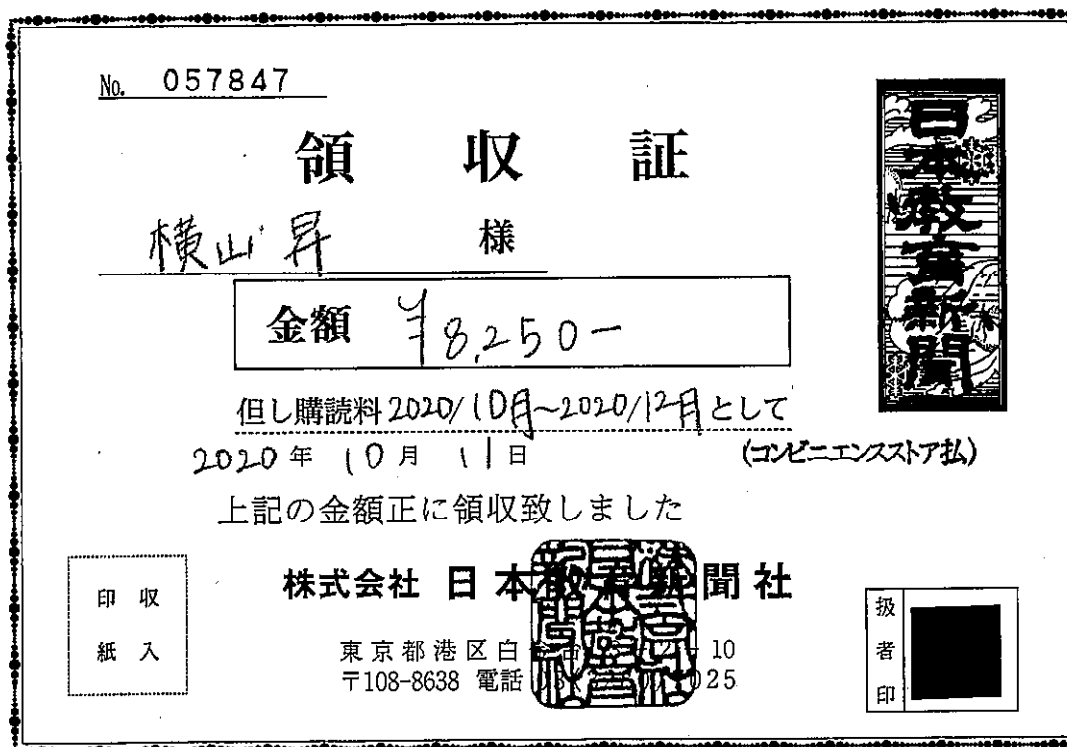 No. 057847
領収証
横山 昇 様
金額 ¥8,250-
但し購読料2020/10月~2020/12月として
2020年 10月 11日
(コンビニエンスストア払)
上記の金額正に領収致しました
株式会社 日本教育新聞社
東京都港区白 10
〒108-8638 電話 025
収入
印紙
扱者印
日本教育新聞